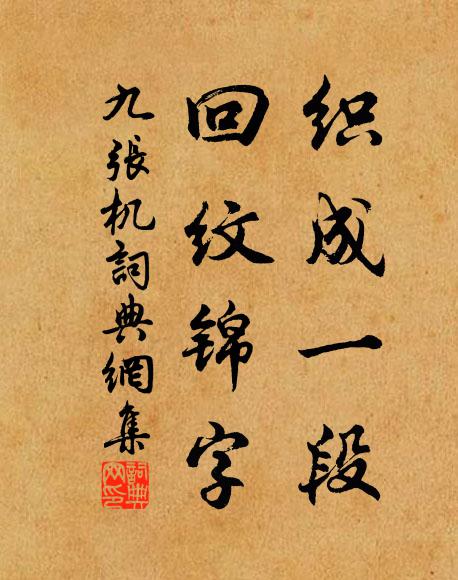 织成一段
回纹锦字
九張机詞典網集
詞典网印